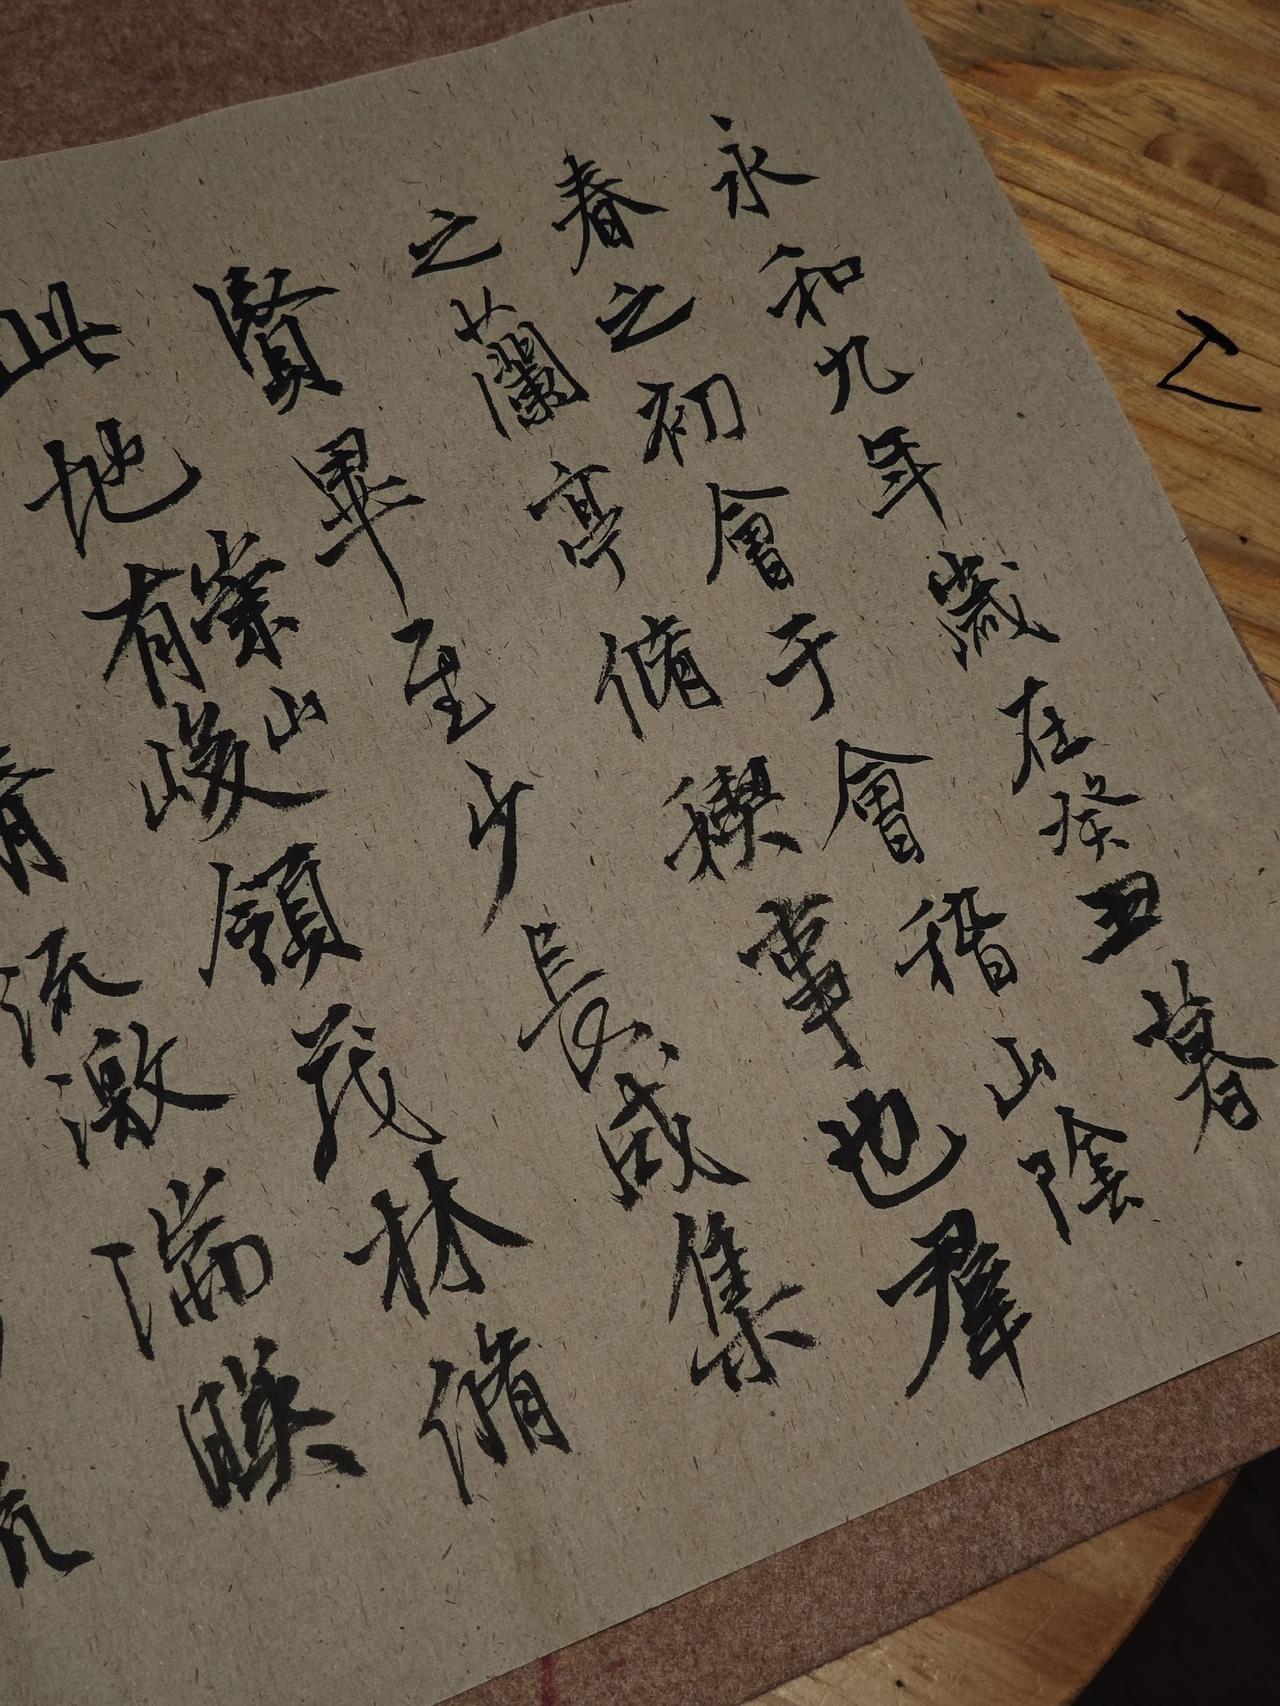 永和九年歲在癸丑暮
春之初會于會稽山陰
之蘭亭脩稧事也羣
賢畢至少長咸集
此地有崇山峻領茂林脩
清流激湍暎